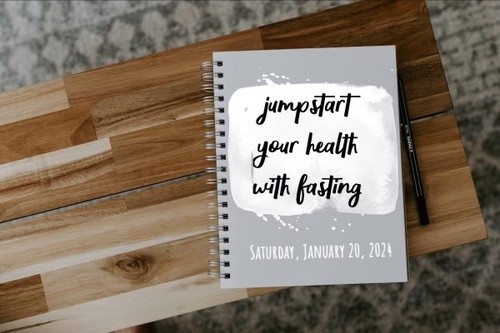 jumpstart
your health
with fasting
Saturday, January 20, 2024